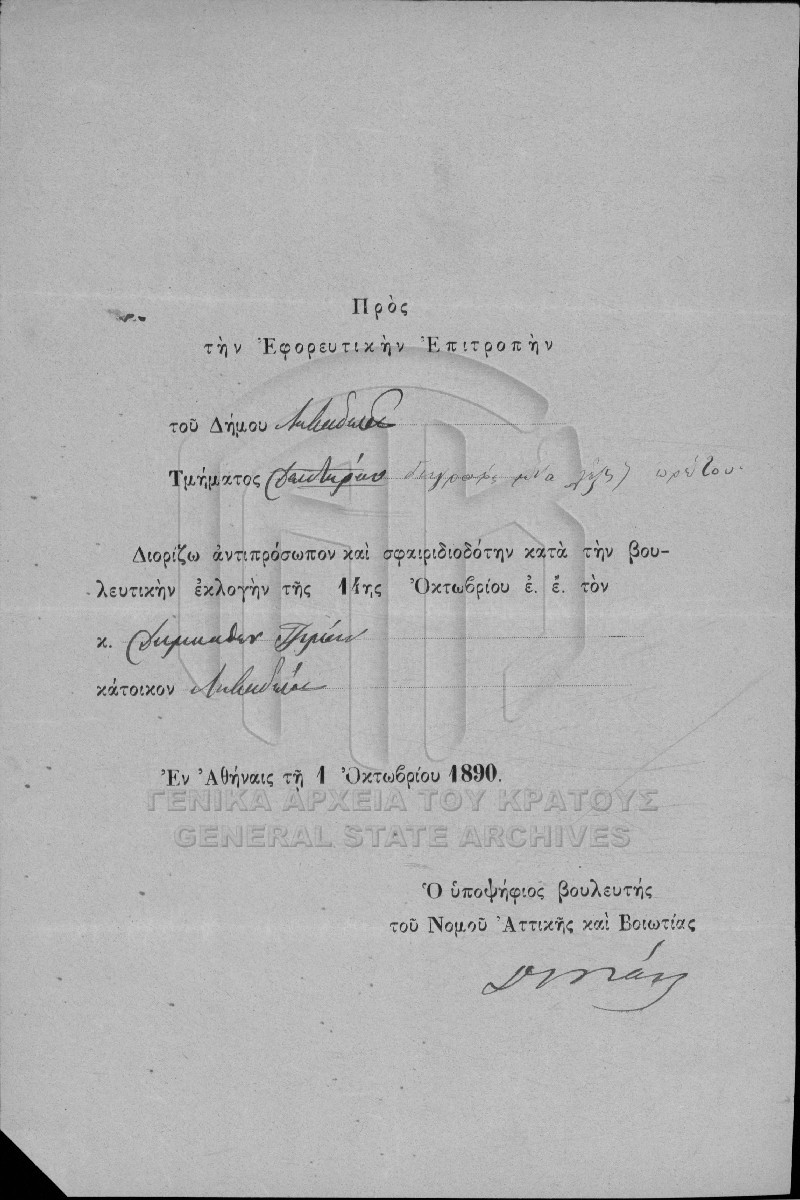 Πρὸς
τὴν Ἐφορευτικὴν Ἐπιτροπὴν
τοῦ Δήμου Λεβαδέων
Τμήματος μία λέξις πρώτου
Διορίζω ἀντιπρόσωπον καὶ σφαιριδιοδότην κατὰ τὴν βου-
λευτικὴν ἐκλογὴν τῆς 14ης Ὀκτωβρίου ἐ. ἔ. τὸν
κ.
κάτοικον
Ἐν Ἀθήναις τῇ 1 Ὀκτωβρίου 1890.
ΓΕΝΙΚΑ ΑΡΧΕΙΑ ΤΟΥ ΚΡΑΤΟΥΣ
GENERAL STATE ARCHIVES
Ὁ ὑποψήφιος βουλευτής
τοῦ Νομοῦ Ἀττικῆς καὶ Βοιωτίας